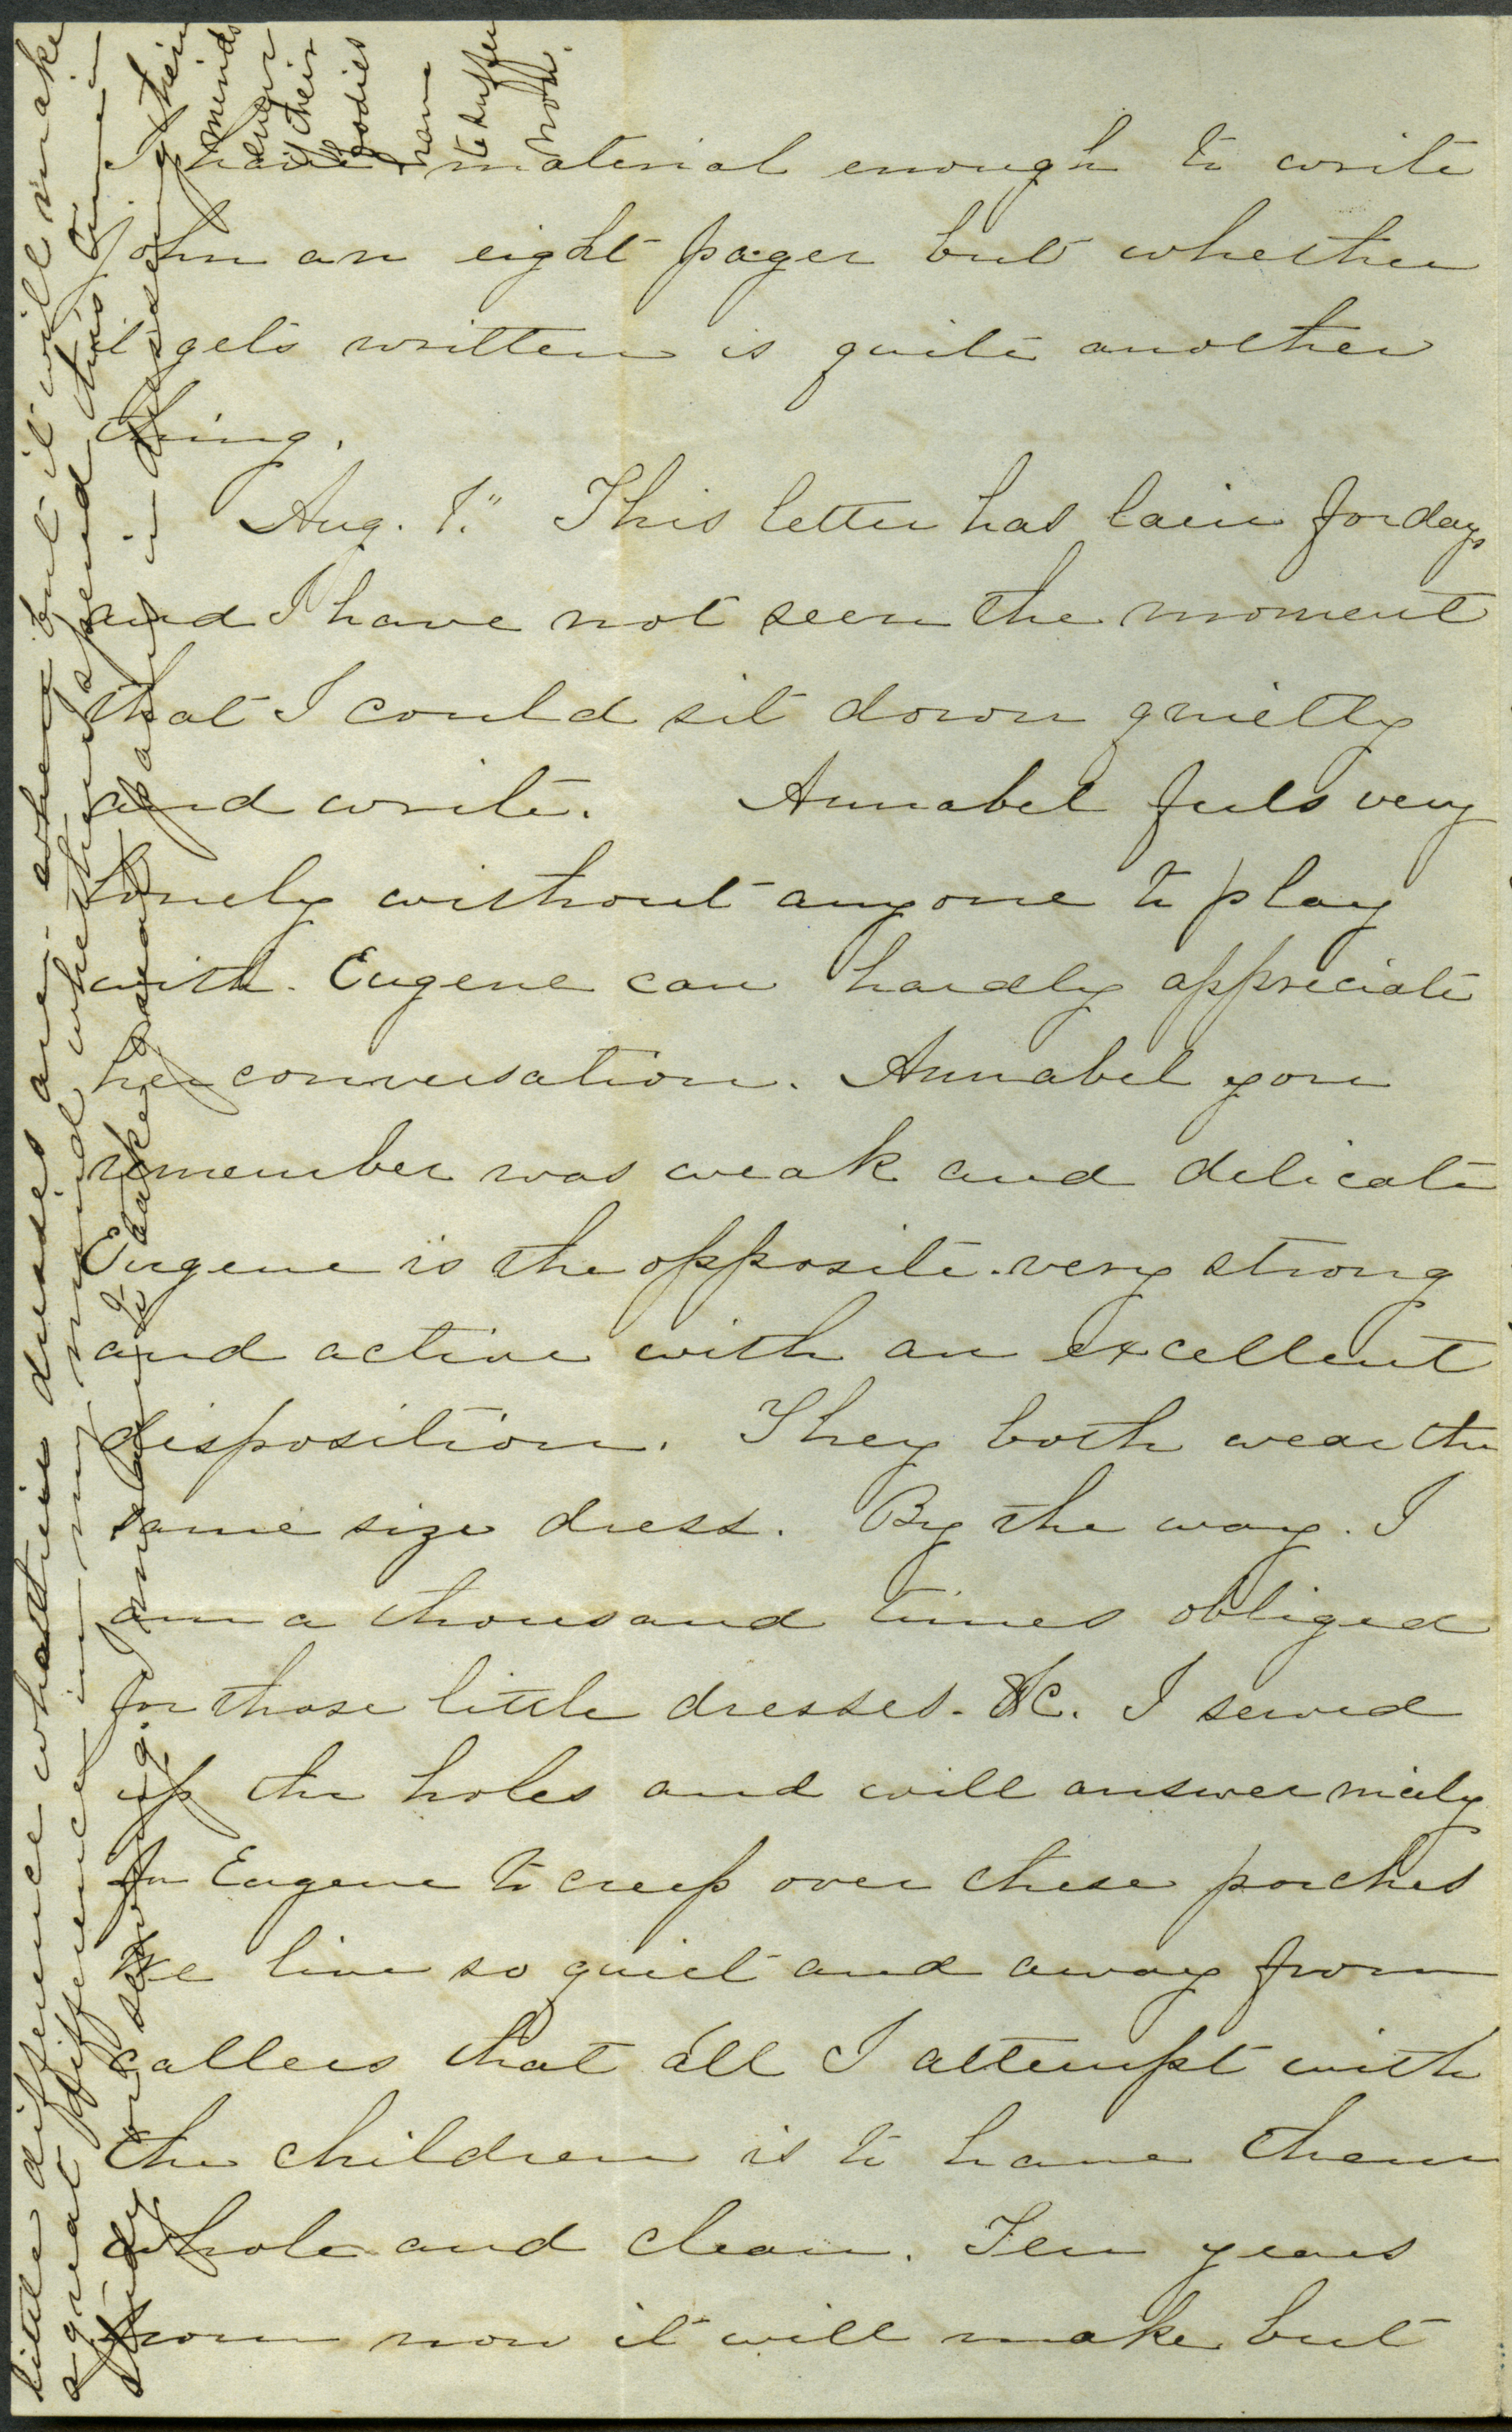 I have material enough to write
John an eight pager but whether
it gets written is quite another
thing.
Aug. 1." This letter has lain for days
and I have not seen the moment
that I could sit down quietly
and write. Annabel feels very
lonely without anyone to play
with. Eugene can hardly appreciate
her conversation. Annabel you
remember was weak and delicate
Eugene is the opposite. very strong
and active with an excellent
disposition. They both wear the
same size dress. By the way. I
am a thousand times obliged
for those little dresses. &C. I sewed
up the holes and will answer nicely
for Eugene to creep over these porches
We live so quiet and away from
callers that all I attempt with
the children is to have them
whole and clean. Ten years
from now it will make but
little difference what their dresses are. where but it will make
a great difference in my mind whether I spend this time in
study or sewing. I mean to take great pains in dressing their
minds
even
if their
bodies
have
to suffer
now.